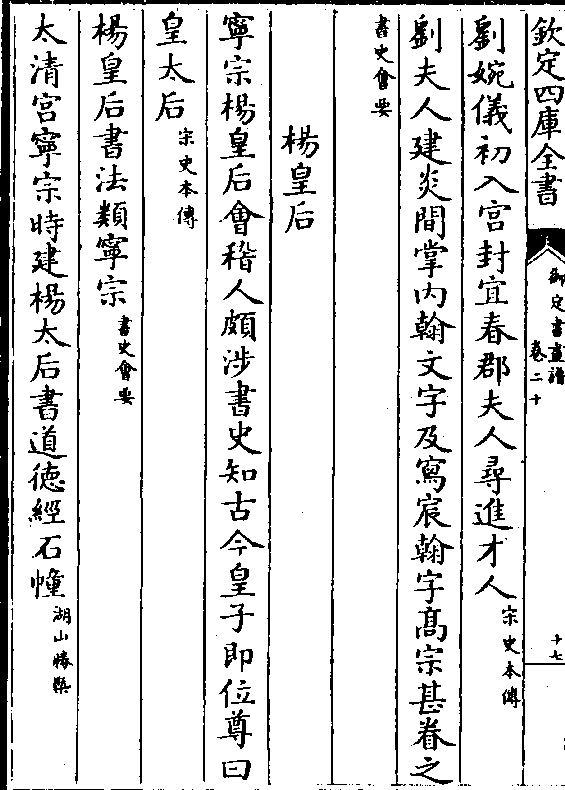 欽定四庫全書
御定書畫譜
卷二十
十七
劉婉儀初入宮封宜春郡夫人尋進才人宋史本傳
劉夫人建炎間掌内翰文字及寫宸翰字髙宗甚眷之
書史㑹要
楊皇后
寧宗楊皇后㑹稽人頗涉書史知古今皇子即位尊曰
皇太后宋史本傳
楊皇后書法類寧宗書史㑹要
太清宮寧宗時建楊太后書道徳經石幢湖山勝槩